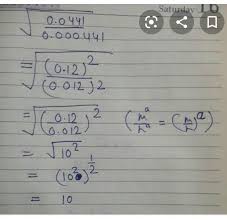 Saturday 16
√(0.0441 / 0.000441)
= √((0.12)² / (0.012)²)
= √((0.12 / 0.012)²) (mᵃ / nᵃ = (m / n)ᵃ)
= √10²
= (10²)^(1/2)
= 10